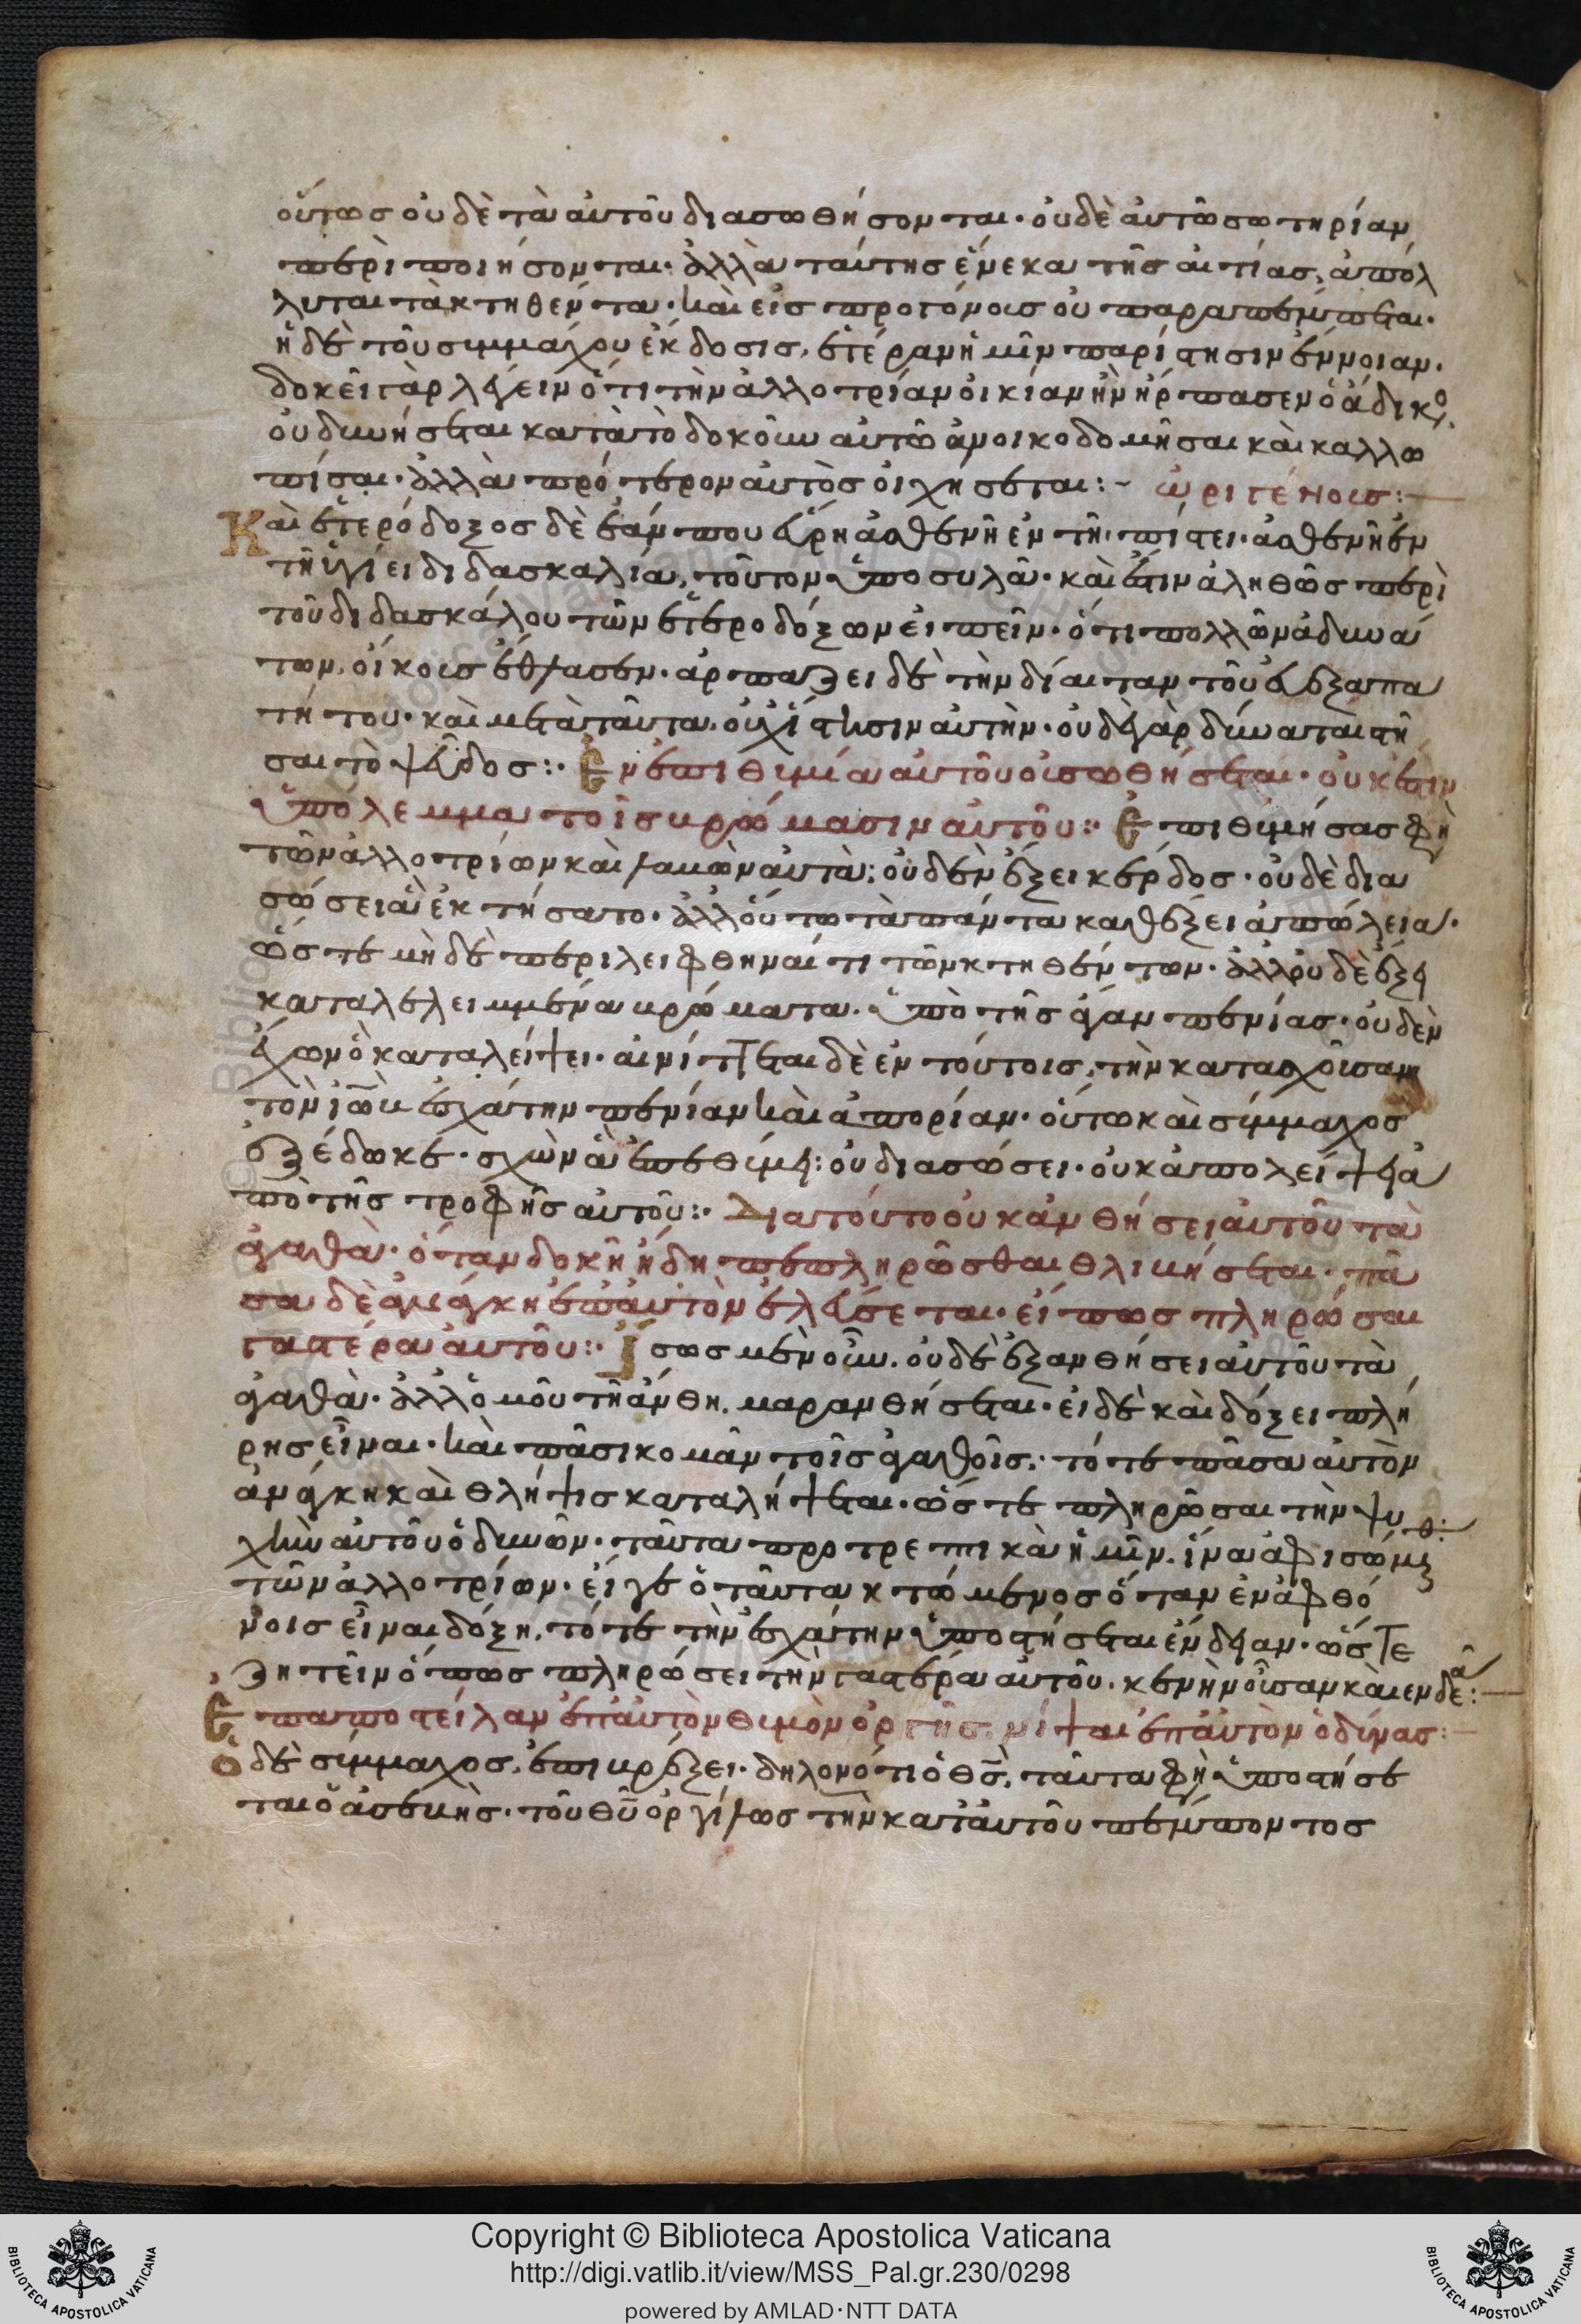 οὕτως οὐδὲ τὰ αὐτοῦ διασωθήσονται· οὐδὲ αὐτῶ σωτηρίαν
περιποιήσονται· ἀλλὰ ταύτης ἕνεκα τῆς αἰτίας, ἀπόλ
λυται τὰ κτηθέντα· καὶ εἰς προγόνους οὐ παραπέμπεται·
ἡ δὲ τοῦ συμμάχου ἔκδοσις, ἑτέραν ἡμῖν παρίστησιν ἔννοιαν·
δοκεῖ γὰρ λέγειν ὅτι τὴν ἀλλοτρίαν οἰκίαν ἣν ἥρπασεν ὁ ἄδικος
οὐ δυνήσεται κατὰ τὸ δοκοῦν αὐτῶ ἀνοικοδομῆσαι καὶ καλλω
πίσαι· ἀλλὰ πρότερον αὐτὸς οἰχήσεται:~ ὠριγένους:
Καὶ ἑτερόδοξος δὲ ἐάν που εὕρη ἀσθενῆ ἐν τῆ πίστει· ἀσθενῆ ἐν
τῆ ὑγιεῖ διδασκαλία, τοῦτον ὑποσυλᾶ· καὶ ἔστιν ἀληθῶς περὶ
τοῦ διδασκάλου τῶν ἑτεροδόξων εἰπεῖν· ὅτι πολλῶν ἀδυνά
των, οἴκους ἔθλασεν· ἁρπάζει δὲ τὴν δίαιταν τοῦ εὐεξαπα
τήτου· καὶ μετὰ ταῦτα, οὐχ ἵστησιν αὐτήν· οὐδὲ γὰρ δύναται στῆ
σαι τὸ ψεῦδος:· Ἐν ἐπιθυμία αὐτοῦ οὐ σωθήσεται· οὐκ ἔστιν
ὑπόλειμμα τοῖς βρώμασιν αὐτοῦ:· Ἐπιθυμήσας φησὶ
τῶν ἀλλοτρίων καὶ λαβὼν αὐτὰ; οὐδὲν ἕξει κέρδος· οὐδὲ δια
σώσει ἃ ἐκτήσατο· ἀλλ' οὕτω τὰ πάντα καθέξει ἀπώλεια·
ὥστε μηδὲ περιλειφθῆναί τι τῶν κτηθέντων· ἀλλ' οὐδὲ ἕξει
καταλελειμμένα βρώματα. ὑπὸ τῆς ἄγαν πενίας· οὐδὲν
ἔχων ὃ καταλείψει· αἰνίττεται δὲ ἐν τούτοις, τὴν κατασχοῦσαν
τὸν ἰὼβ ἐσχάτην πενίαν καὶ ἀπορίαν· οὕτω καὶ σύμμαχος
ἐξέδωκε· σχὼν ἃ ἐπεθύμει: οὐ διασώσει· οὐκ ἀπολείψει ἀ
πὸ τῆς τροφῆς αὐτοῦ:· Διατοῦτο οὐκ ἀνθήσει αὐτοῦ τὰ
ἀγαθά· ὅταν δοκῆ ἤδη πεπληρῶσθαι θλιβήσεται· πᾶ
σα δὲ ἀνάγκη ἐπ' αὐτὸν ἐλεύσεται· εἴ πως πληρώσαι
γαστέρα αὐτοῦ:· Ἴσως μὲν οὖν, οὐδὲ ἐξανθήσει αὐτοῦ τὰ
ἀγαθά· ἀλλ' ὁμοῦ τῆ ἄνθη, μαρανθήσεται· εἰ δὲ καὶ δόξει πλή
ρης εἶναι· καὶ πᾶσι κομᾶν τοῖς ἀγαθοῖς· τότε πᾶσα αὐτὸν
ἀνάγκη καὶ θλῆψις καταλήψεται· ὥστε πληρῶσαι τὴν ψυ
χὴν αὐτοῦ ὀδυνῶν· ταῦτα προτρεπτικὰ ἡμῖν, ἵνα ἀφιστώμεθα
τῶν ἀλλοτρίων· εἴγε ὁ ταῦτα κτώμενος ὅταν ἐν ἀφθό
νοις εἶναι δόξη, τότε τὴν ἐσχάτην ὑποστήσεται ἔνδειαν· ὥστε
ζητεῖν ὅπως πληρώσει τὴν γαστέρα αὐτοῦ, κενὴν οὖσαν καὶ ενδεᾶ:
Ἐπαποστείλαι ἐπ' αὐτὸν θυμὸν ὀργῆς· νίψαι ἐπ' αὐτὸν ὀδύνας:
Ὁ δὲ σύμμαχος, ἐπιβρέξει· δηλονότι ὁ θς, ταῦτα φησὶ ὑποστήσε
ται ὁ ἀσεβής· τοῦ θυ ὀργίλως τὴν κατ' αὐτοῦ πέμποντος
Copyright © Biblioteca Apostolica Vaticana
http://digi.vatlib.it/view/MSS_Pal.gr.230/0298
powered by AMLAD·NTT DATA
BIBLIOTECA APOSTOLICA VATICANA
BIBLIOTECA APOSTOLICA VATICANA